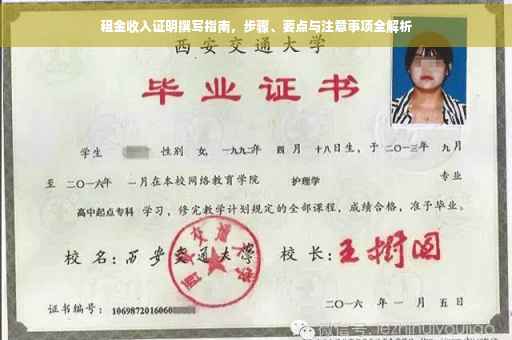 租金收入证明撰写指南，步骤、要点与注意事项全解析
西安交通大学
毕业证书
学生 性别 女，一九九二年 四月 十八日生，于二〇一三年 九月
至 二〇一六年 一月在本校网络教育学院 护理学 专业
高中起点专科 学习，修完教学计划规定的全部课程，成绩合格，准予毕业。
校 名：西安交通大学 校 长：王树国
西安交通大学
证书编号：1069872016060
二〇一六 年 一 月 五 日
微信号: jiezhinuiyoujiao